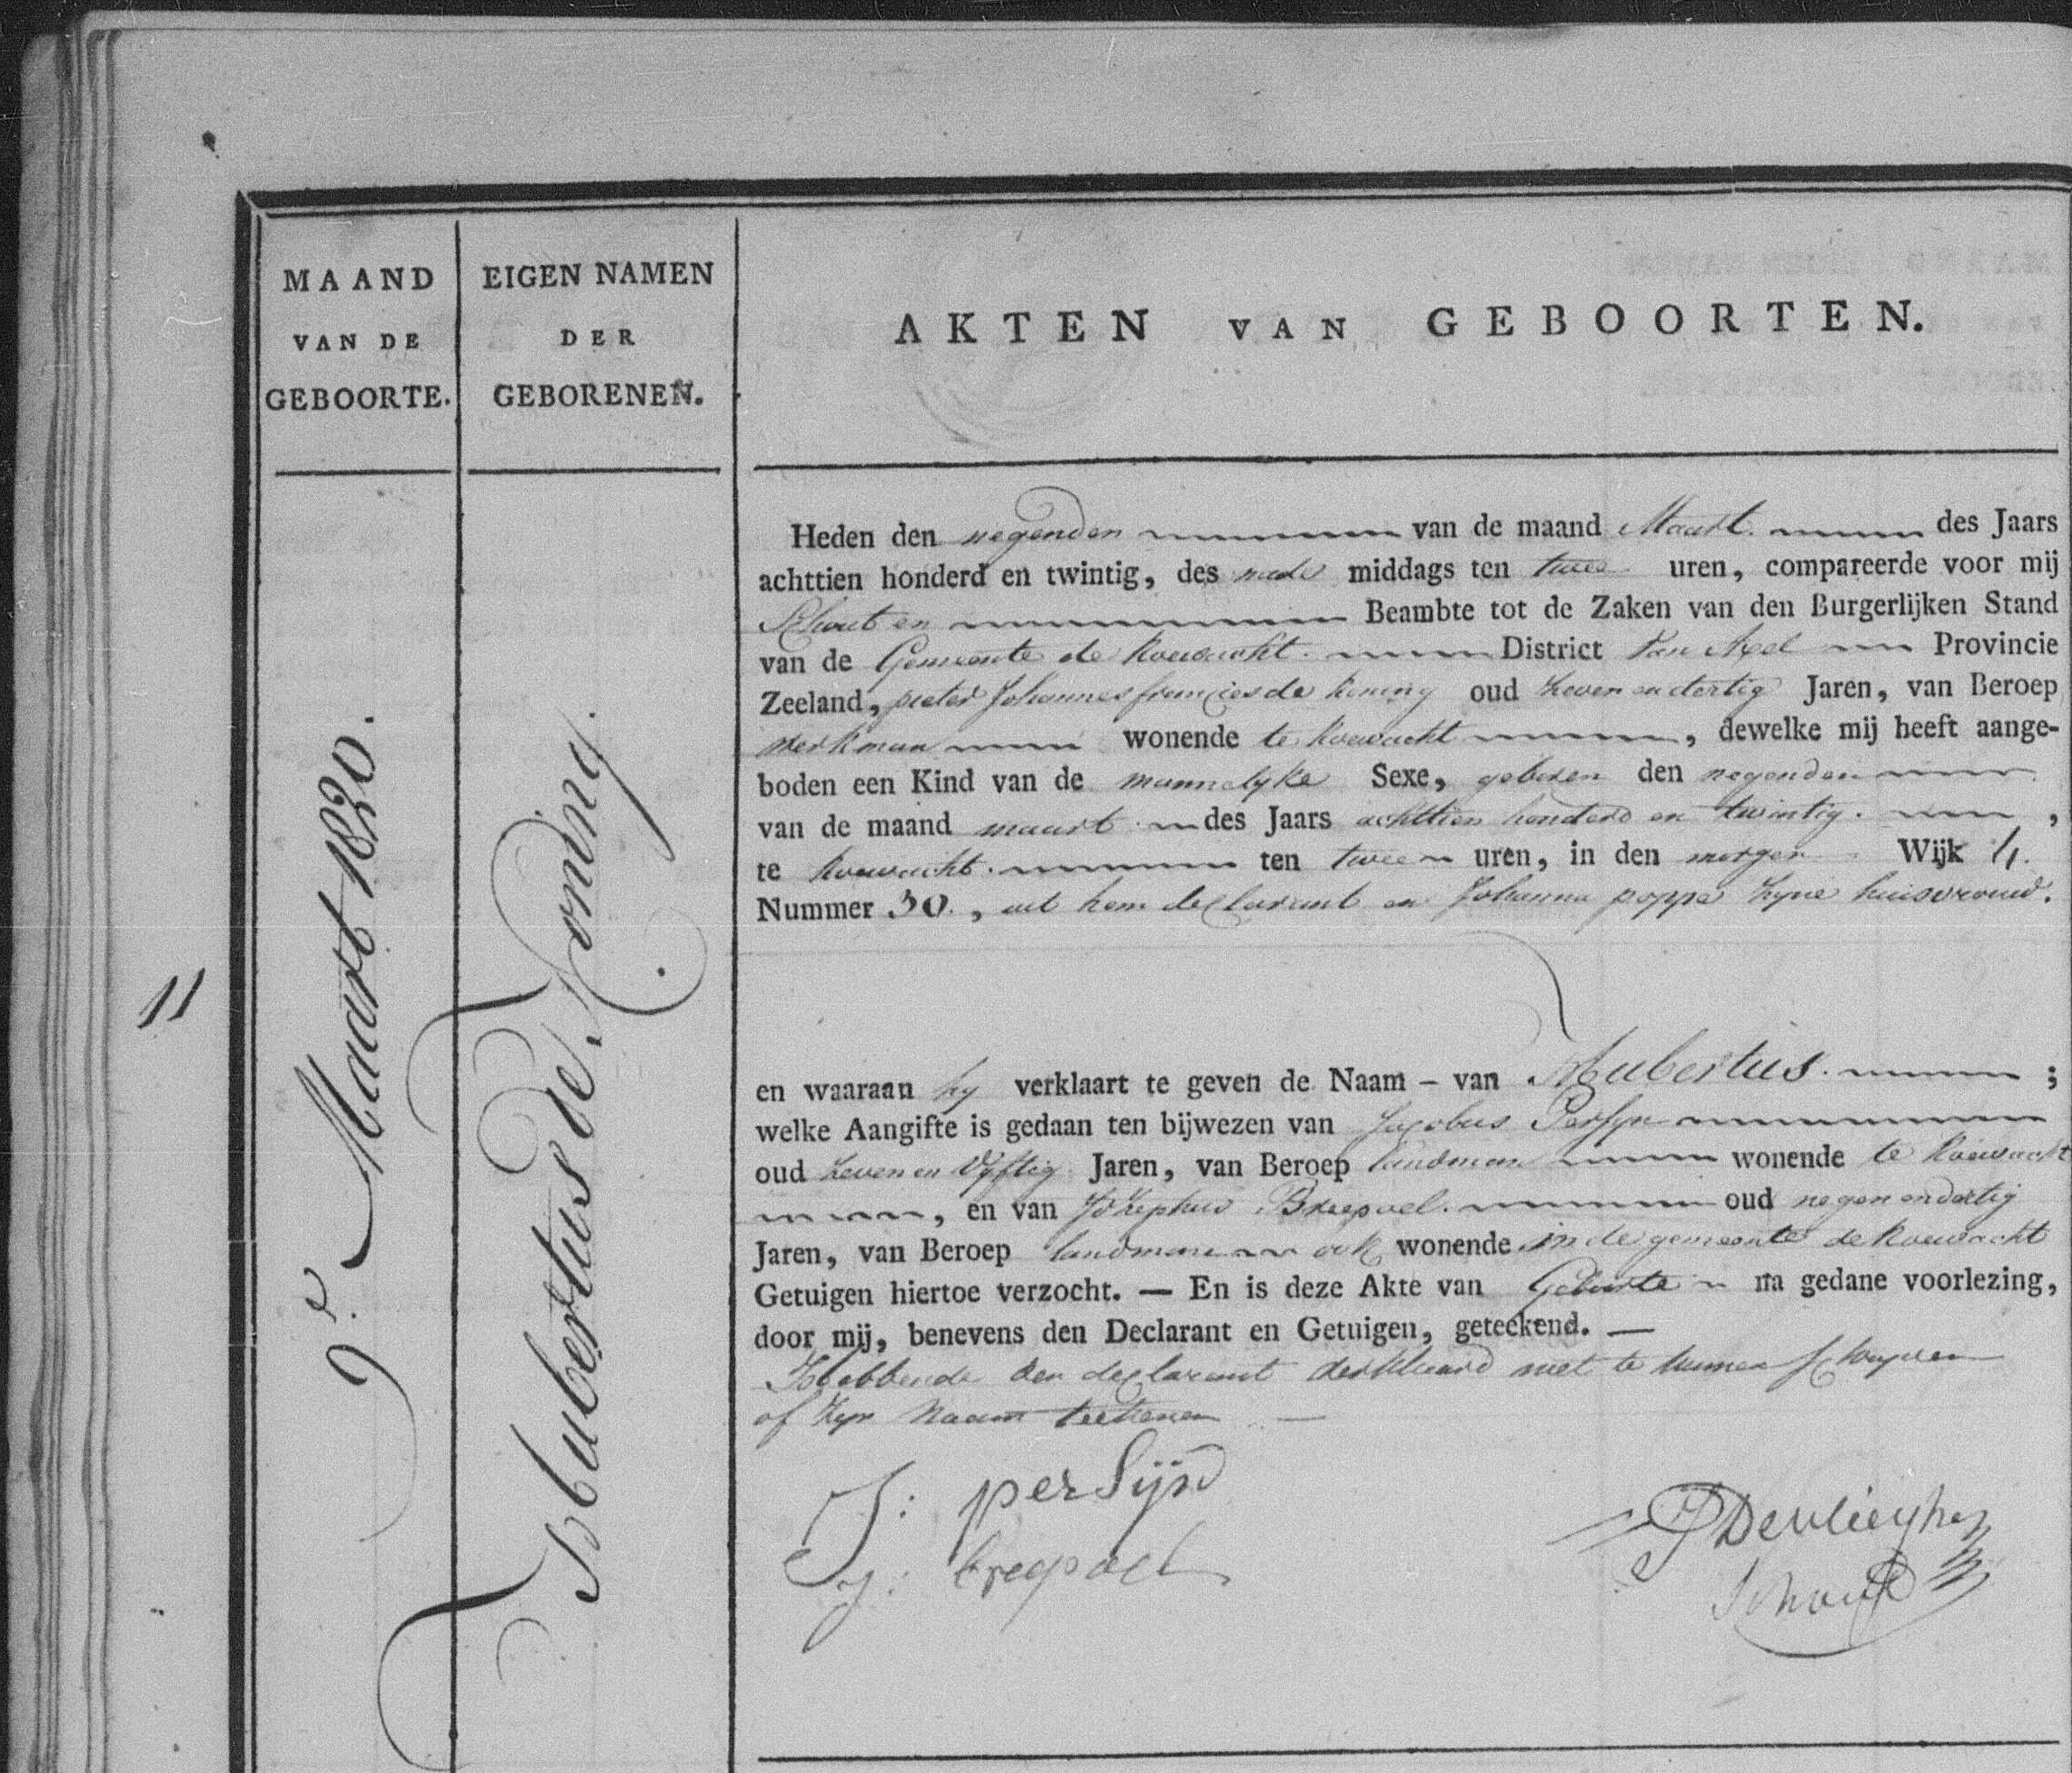 MAAND
VAN DE
GEBOORTE.
EIGEN NAMEN
DER
GEBORENEN.
AKTEN VAN GEBOORTEN.
11
9e Maart 1820.
Hubertus de Koning.
Heden den negenden van de maand Maart des Jaars
achttien honderd en twintig, des nade middags ten twee uren, compareerde voor mij
Schout en Beambte tot de Zaken van den Burgerlijken Stand
van de Gemeente de Koewacht District van Axel Provincie
Zeeland, pieter Johannes francies de koning oud zeven en dertig Jaren, van Beroep
werkman wonende te koewacht, dewelke mij heeft aange-
boden een Kind van de mannelyke Sexe, geboren den negenden
van de maand maart des Jaars achttien honderd en twintig.,
te koewacht. ten twee uren, in den morgen Wijk 4.
Nummer 30., uit hem declarant en Johanna poppe zyne huisvrouw.
en waaraan hy verklaart te geven de Naam – van Hubertus. ;
welke Aangifte is gedaan ten bijwezen van Jacobus Persyn
oud zeven en vyftig Jaren, van Beroep landman wonende te koewacht
, en van Josephus Breepoel. oud negen en dertig
Jaren, van Beroep landman ook wonende in de gemeente de koewacht
Getuigen hiertoe verzocht. — En is deze Akte van Geboorte na gedane voorlezing,
door mij, benevens den Declarant en Getuigen, geteekend. —
Hebbende den declarant verklaard niet te kunnen schryven
of zyn Naam teekenen —
J: perSijn
J: breepoel
Devliegher
Schout